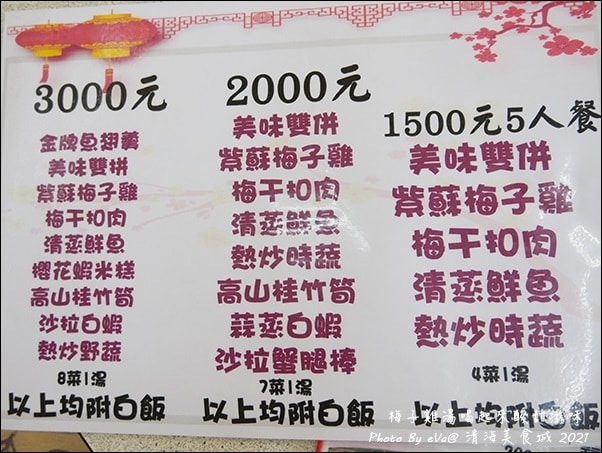 3000元
金牌魚翅羹
美味雙拼
紫蘇梅子雞
梅干扣肉
清蒸鮮魚
櫻花蝦米糕
高山桂竹筍
沙拉白蝦
熱炒野蔬
8菜1湯
以上均附白飯
2000元
美味雙併
紫蘇梅子雞
梅干扣肉
清蒸鮮魚
熱炒時蔬
高山桂竹筍
蒜蒸白蝦
沙拉蟹腿棒
7菜1湯
以上均附白飯
1500元5人餐
美味雙併
紫蘇梅子雞
梅干扣肉
清蒸鮮魚
熱炒時蔬
4菜1湯
以上均附白飯
梅子雞湯喝起來酸甜滋味
Photo By eVa@ 清海美食城 2021